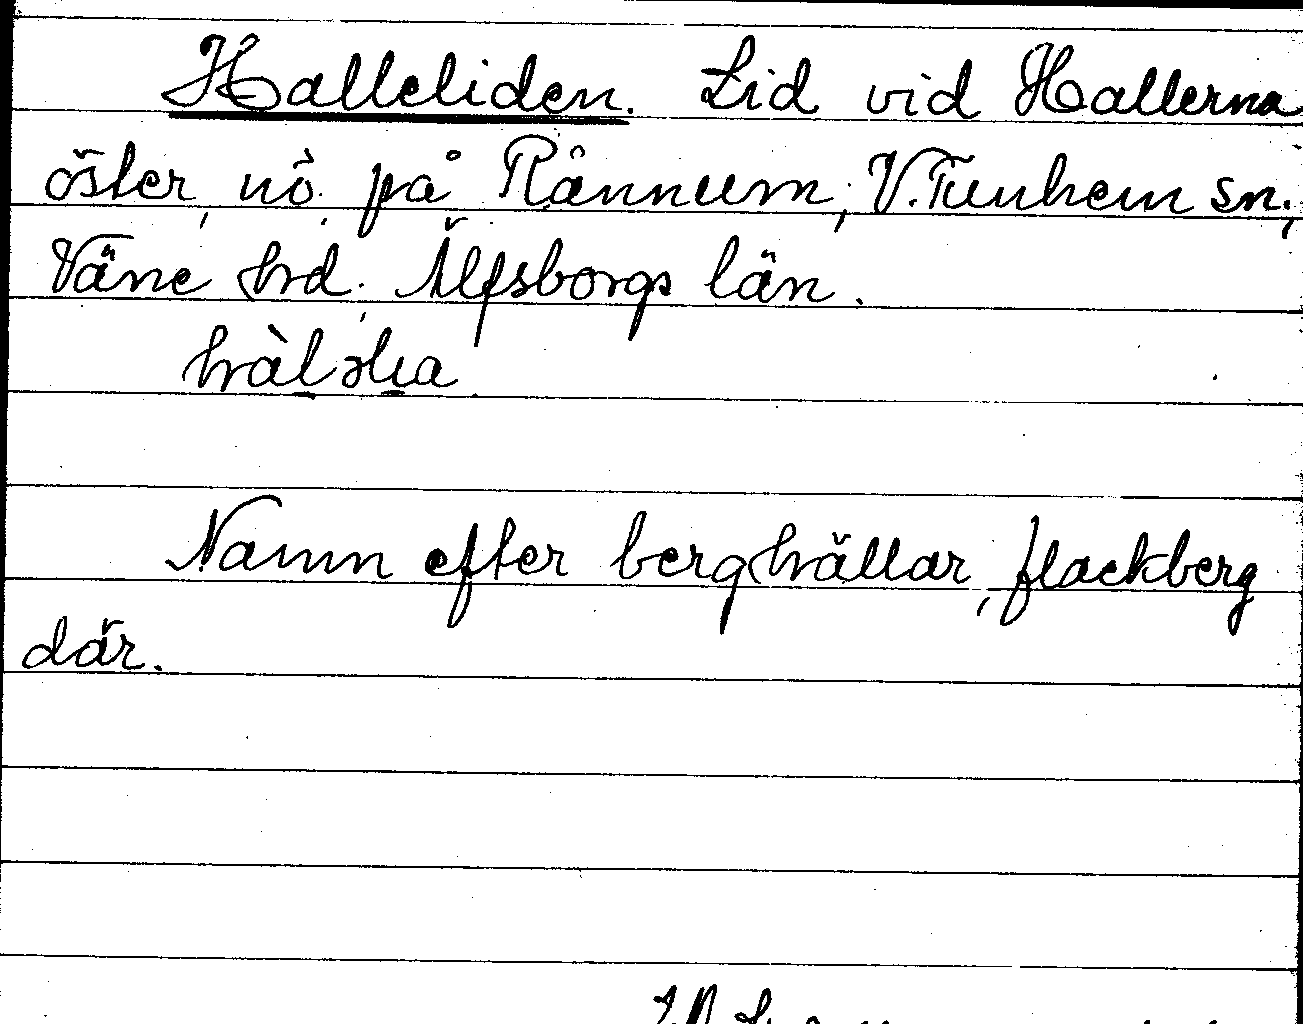 Halleliden. Lid vid Hallerna
öster, nö. på Rånnum, V. Tunhem sn.,
Väne hrd. Älfsborgs län.
Namn efter berghällar, flackberg
där.